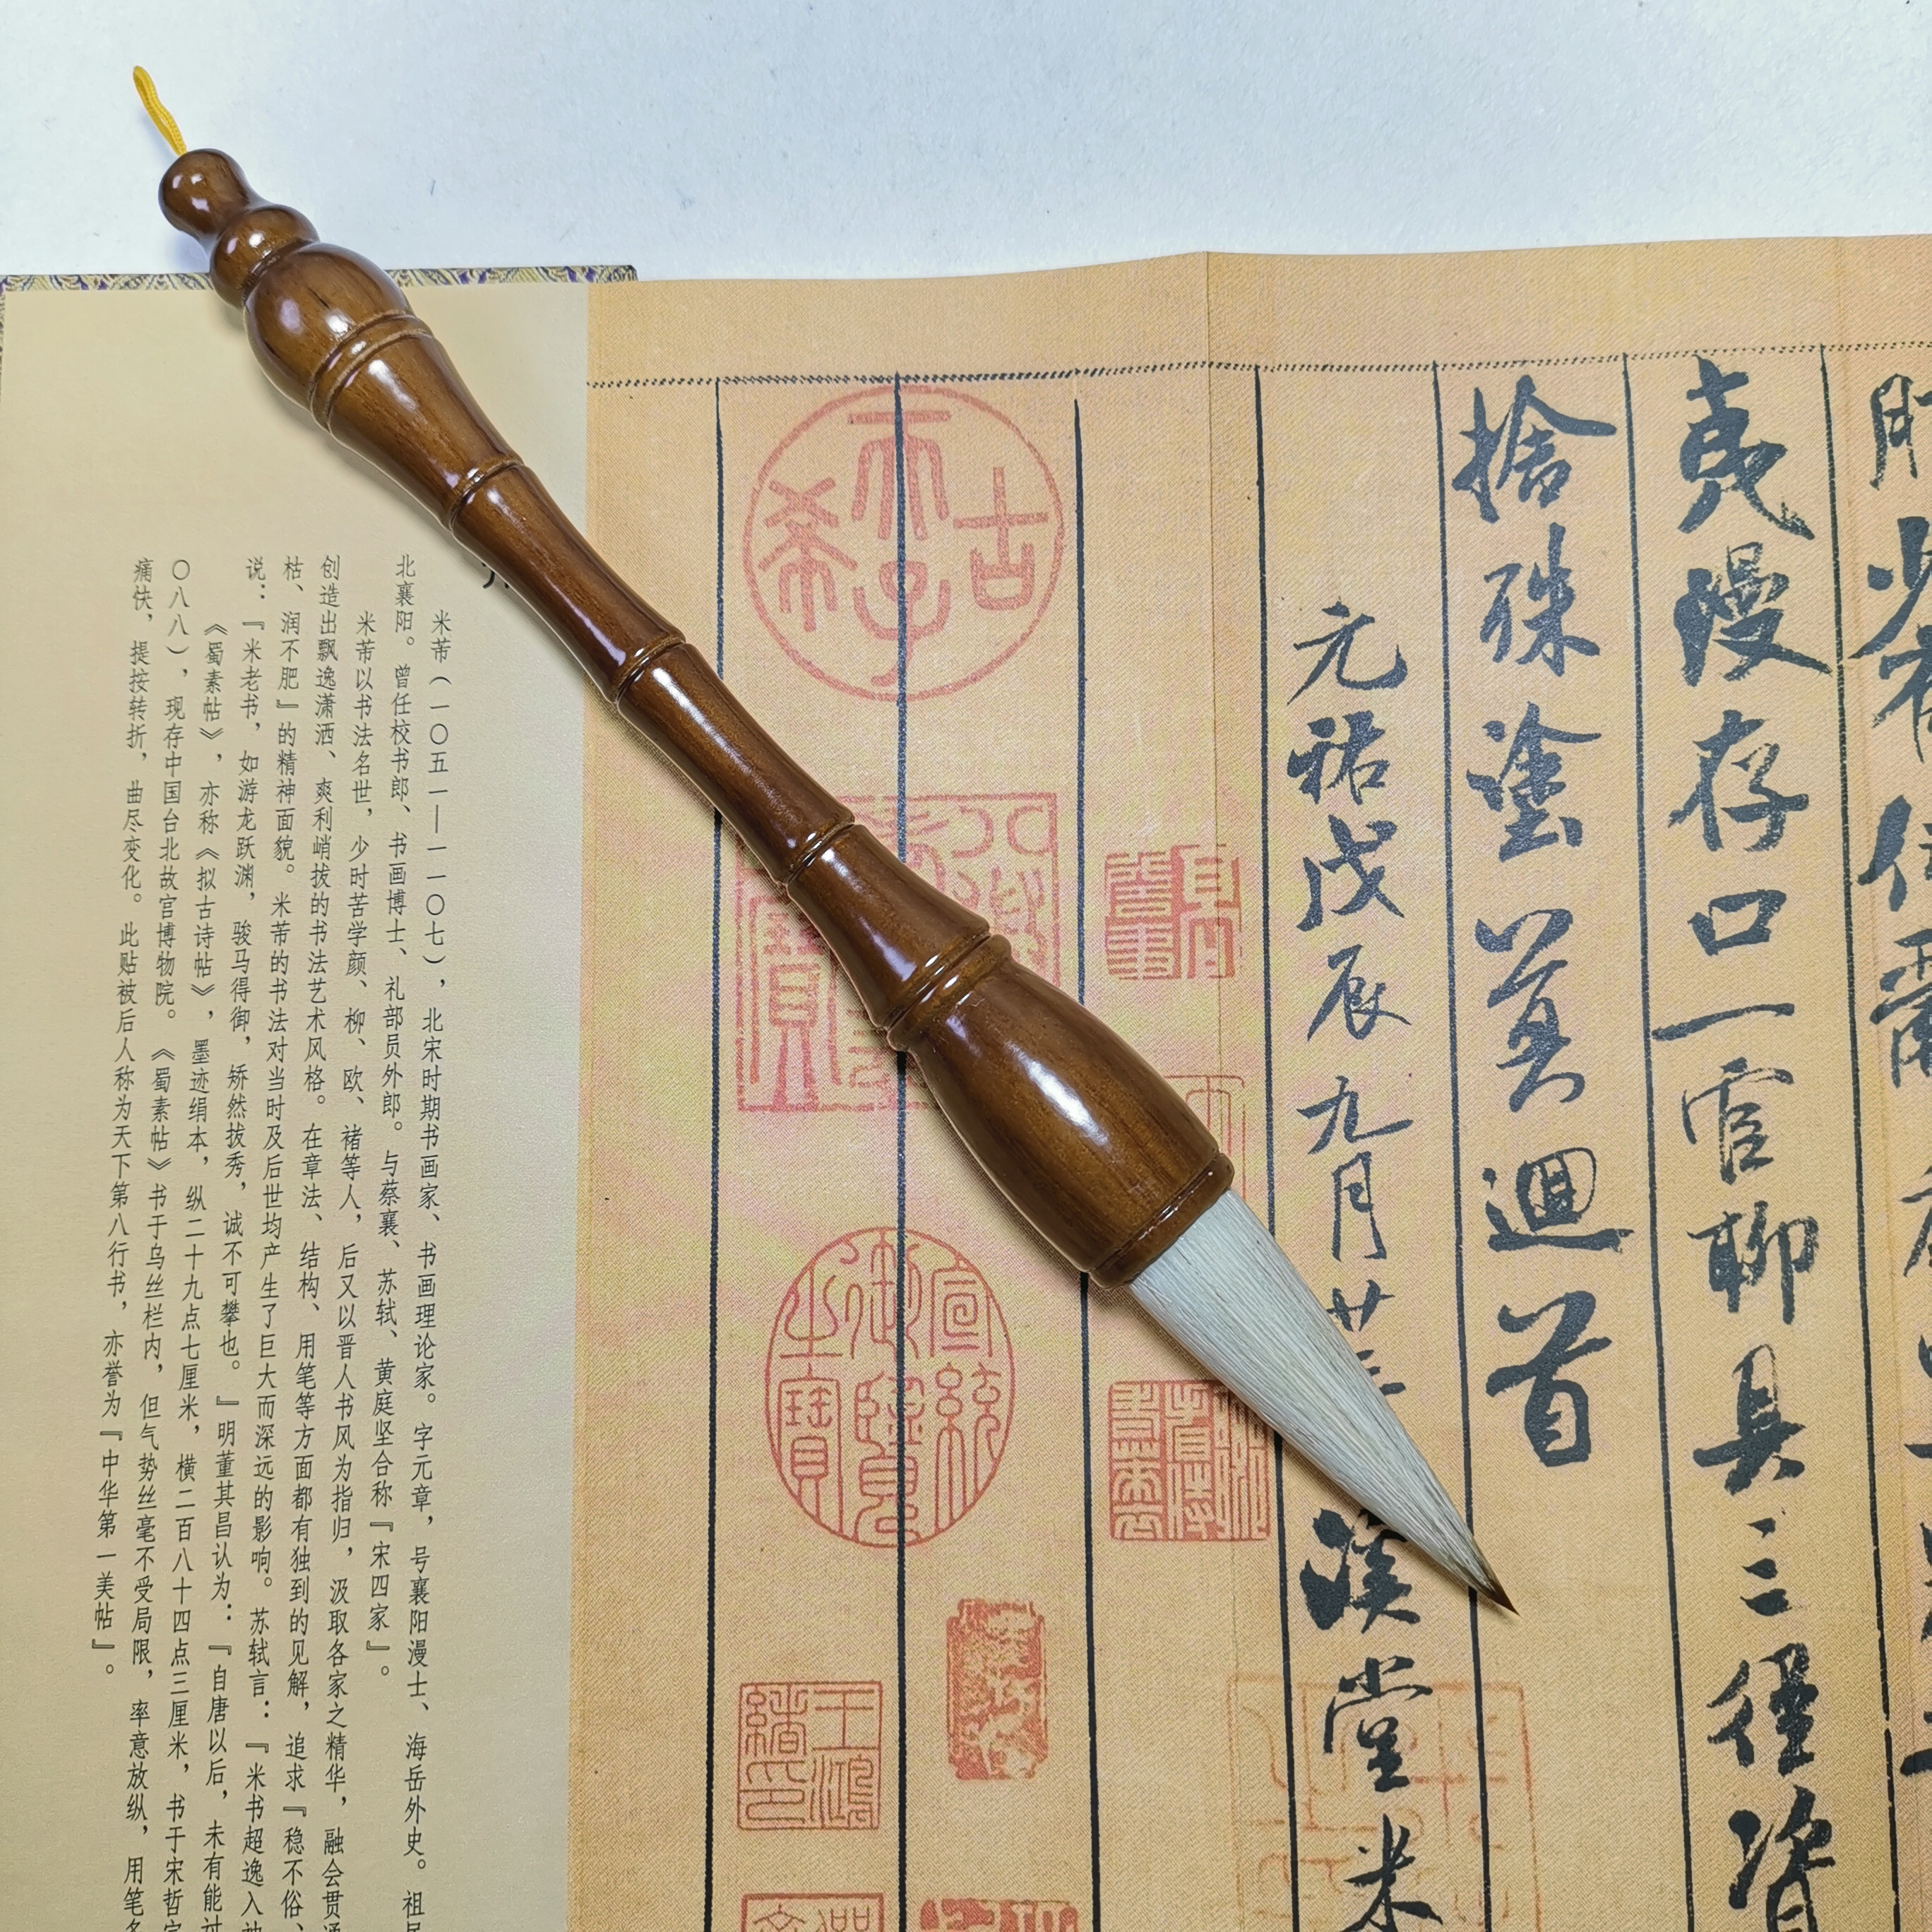 夷漫存口一官聊具三徑資
捨殊塗莫迴首
元祐戊辰九月廿三溪堂米
古希天子
宣統御覽之寶
王鴻緒印
米芾（一〇五一—一一〇七），北宋时期书画家、书画理论家。字元章，号襄阳漫士、海岳外史。祖
北襄阳。曾任校书郎、书画博士、礼部员外郎。与蔡襄、苏轼、黄庭坚合称『宋四家』。
米芾以书法名世，少时苦学颜、柳、欧、褚等人，后又以晋人书风为指归，汲取各家之精华，融会贯通
创造出飘逸潇洒、爽利峭拔的书法艺术风格。在章法、结构、用笔等方面都有独到的见解，追求『稳不俗、
枯、润不肥』的精神面貌。米芾的书法对当时及后世均产生了巨大而深远的影响。苏轼言：『米书超逸入
说：『米老书，如游龙跃渊，骏马得御，矫然拔秀，诚不可攀也。』明董其昌认为：『自唐以后，未有能过
《蜀素帖》，亦称《拟古诗帖》，墨迹绢本，纵二十九点七厘米，横二百八十四点三厘米，书于宋哲宗
〇八八），现存中国台北故宫博物院。《蜀素帖》书于乌丝栏内，但气势丝毫不受局限，率意放纵，用笔
痛快，提按转折，曲尽变化。此贴被后人称为天下第八行书，亦誉为『中华第一美帖』。